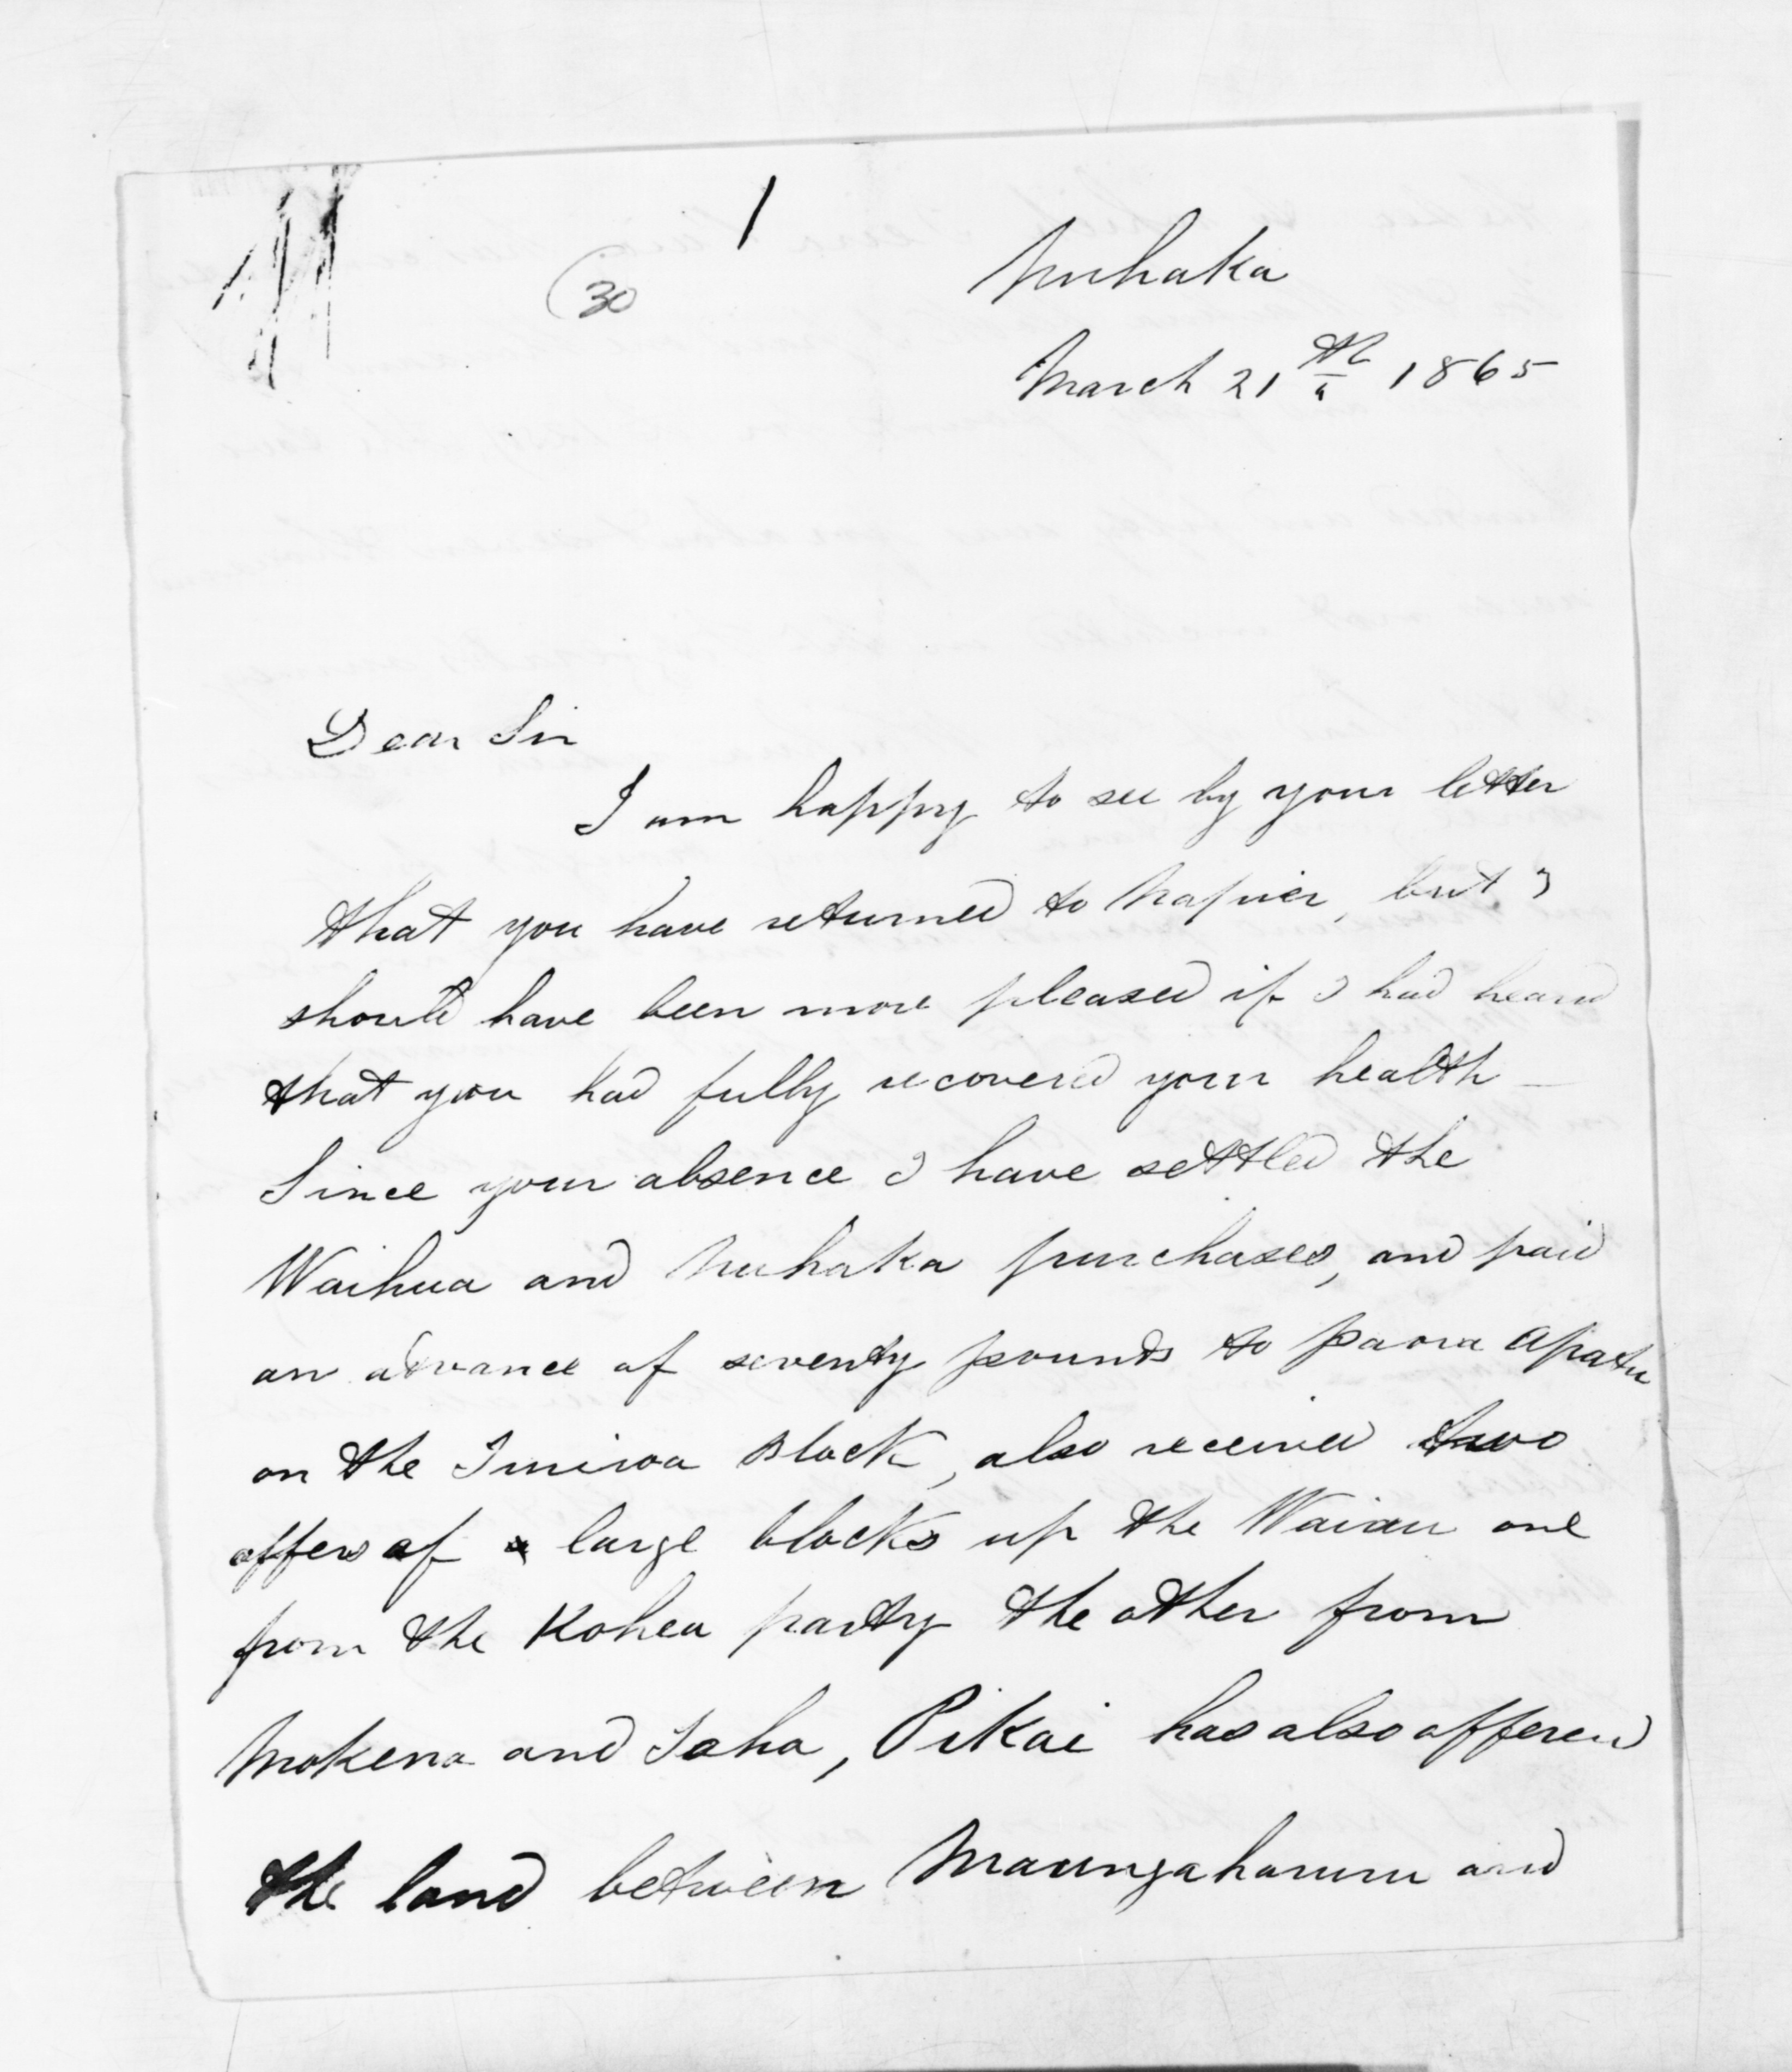 1
30
Nuhaka
March 21th 1865
Dear Sir
I am happy to see by your letter
that you have returned to Napier, but I
should have been more pleased if I had heard
that you had fully recovered your health –
Since your absence I have settled the
Waihua and Nuhaka purchases, and paid
an advance of seventy pounds to Paora Apatu
on the Block, also received two
offers of large blocks up the Waiau one
from the Kohea party the other from
Mokena and Taha, Pikai has also offered
the land between Maungaharuru and